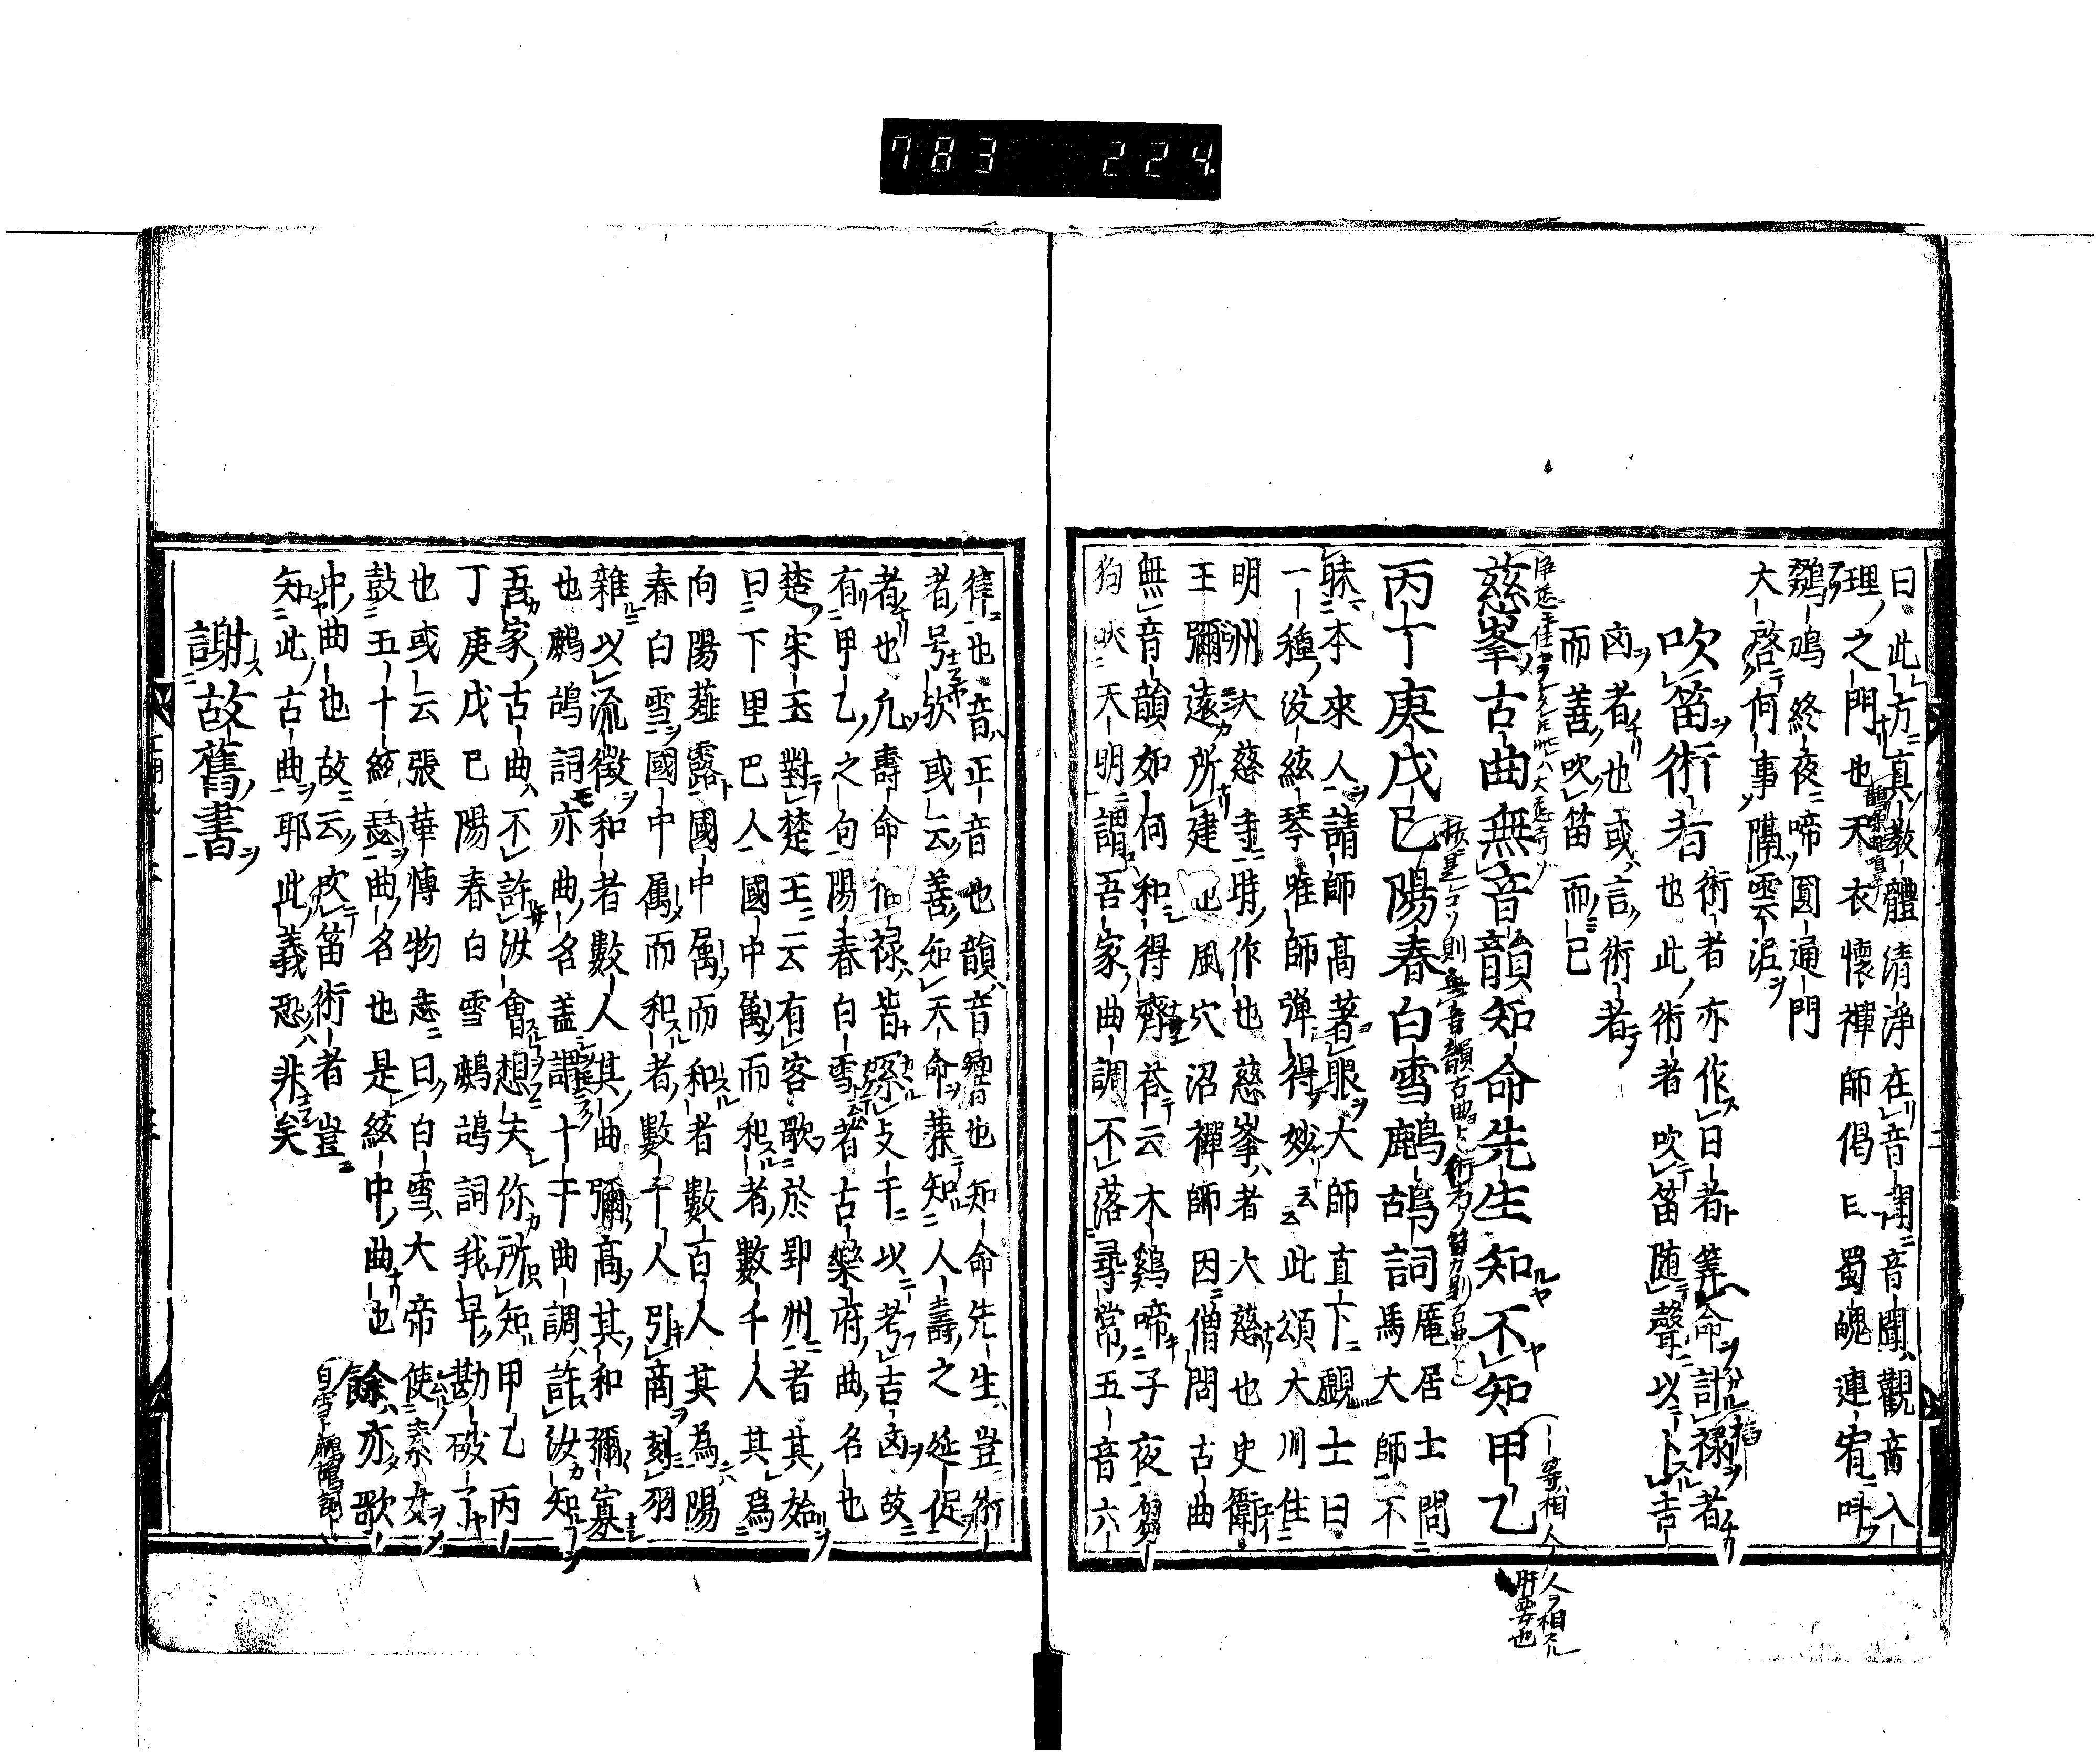 783 224
曰此方真教體清淨在音聞音聞觀音入
理之門也天衣懷禪師偈曰蜀魄連宵叫
鵽鳴終夜啼圓通門
大啓何事隔雲泥
吹笛術者
術者亦作日者筭命計祿者
也此術者吹笛随聲以卜吉
凶者也或言術者
而善吹笛而已
慈峯古曲無音韻知命先生知不知甲乙
丙丁庚戊己陽春白雪鷓鴣詞
龐居士問
馬大師不
昧本來人請師高著眼大師直下覷士曰
一種没絃琴唯師彈得妙云云此頌大川住
明州大慈時作也慈峯者大慈也史衛
王彌遠所建也風穴沼禪師因僧問古曲
無音韻如何和得齊荅云木鷄啼子夜芻
狗吠天明謂吾家曲調不落尋常五音六
律也音正音也韻音韻也知命先生豈術
者号欤或云善知天命兼知人壽之延促
者也凢壽命福祿皆係支干以考吉凶故
有甲乙之句陽春白雪者古樂府曲名也
楚宋玉對楚王云有客歌於郢州者其始
曰下里巴人國中屬而和者數千人其爲
向陽薤露國中属而和者數百人其為陽
春白雪國中属而和者數十人引商刻羽
雜以流徵和者數人其曲彌高其和彌寡
也鷓鴣詞亦曲名盖謂十干曲調許汝知
吾家古曲不許汝會想夫你所知甲乙丙
丁庚戊己陽春白雪鷓鴣詞我早勘破了
也或云張華愽物志曰白雪大帝使素女
鼓五十絃瑟曲名也是絃中曲也餘亦歌
中曲也故云吹笛術者豈
知此古曲耶此義恐非矣
謝故舊書